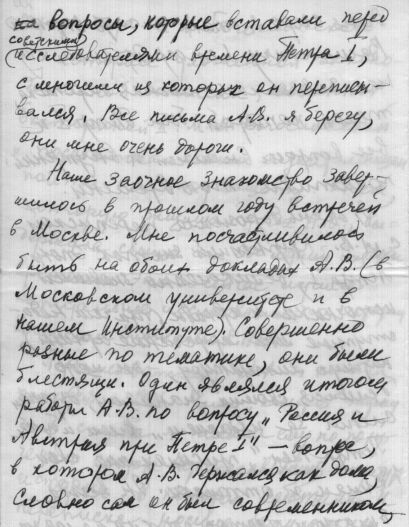 на вопросы, которые вставали перед
советскими
исследователями времени Петра I,
с многими из которых он переписы-
вался. Все письма А.В. я берегу,
они мне очень дороги.
Наше заочное знакомство завер-
шилось в прошлом году встречей
в Москве. Мне посчастливилось
быть на обоих докладах А.В. (в
Московском университете и в
нашем Институте). Совершенно
разные по тематике, они были
блестящи. Один являлся итогом
работы А.В. по вопросу „Россия и
Австрия при Петре I" — вопрос,
в котором А.В. держался как дома,
словно сам он был современником,